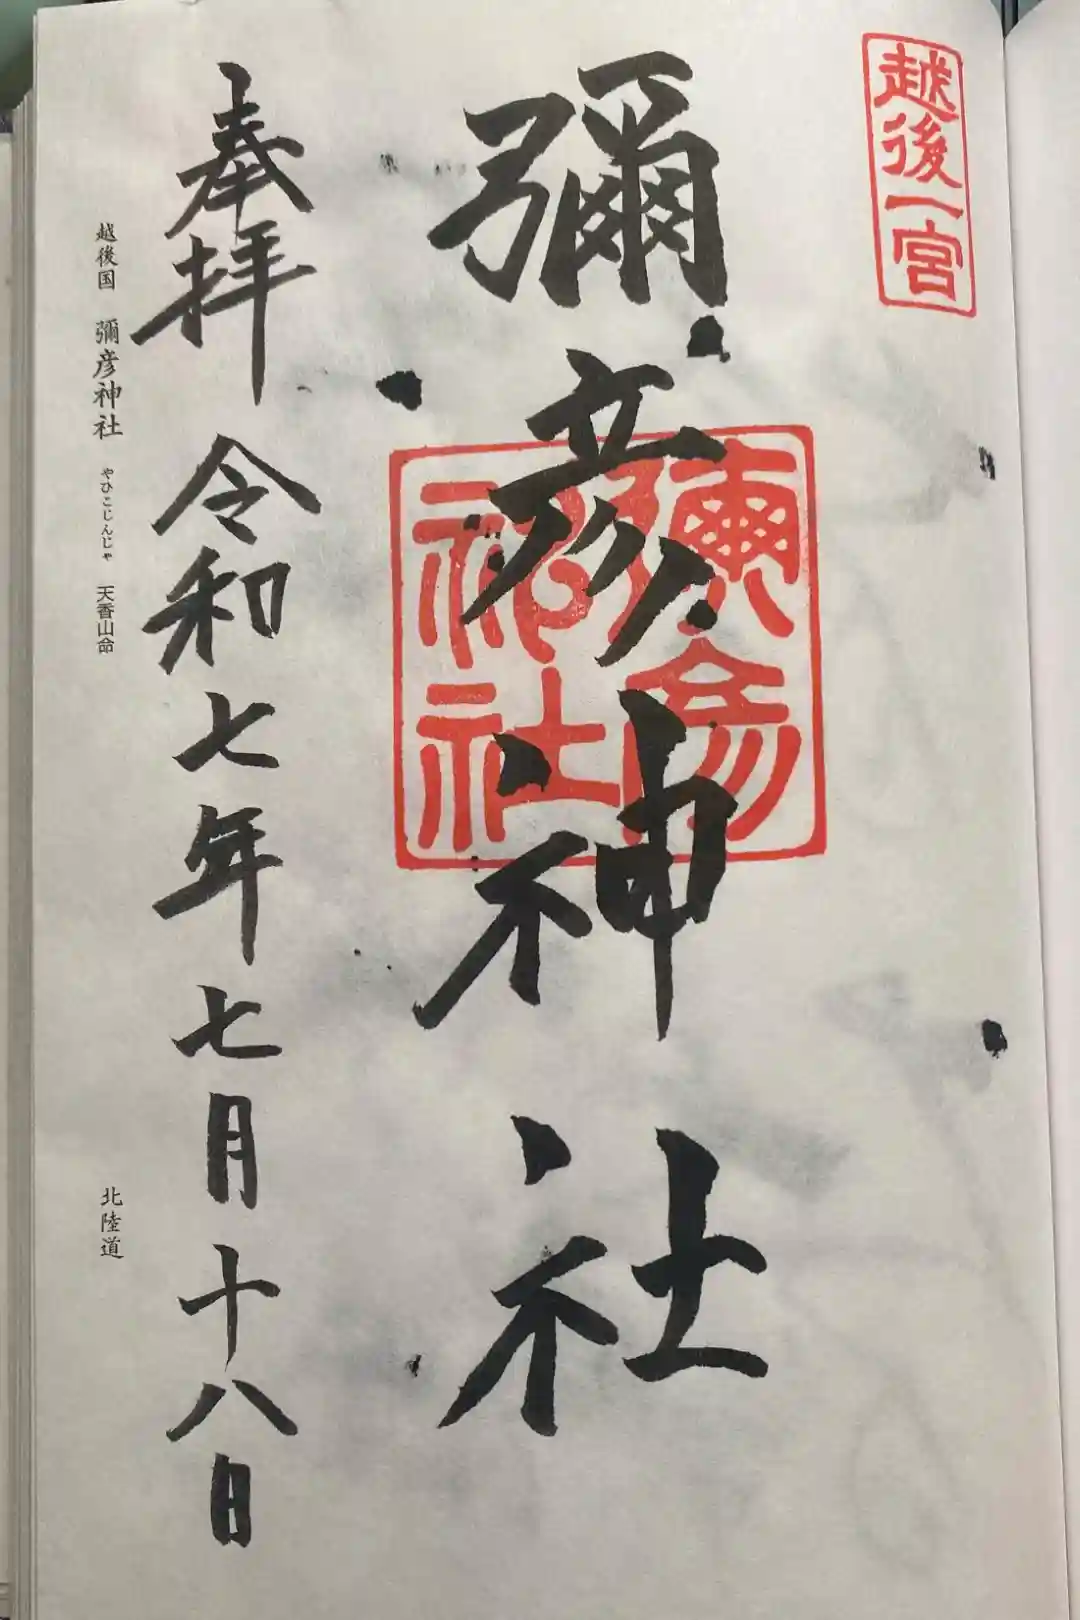 越後一宮
彌彦神社
彌彦神社
奉拝 令和七年七月十八日
越後国 彌彦神社 やひこじんじゃ 天香山命 北陸道